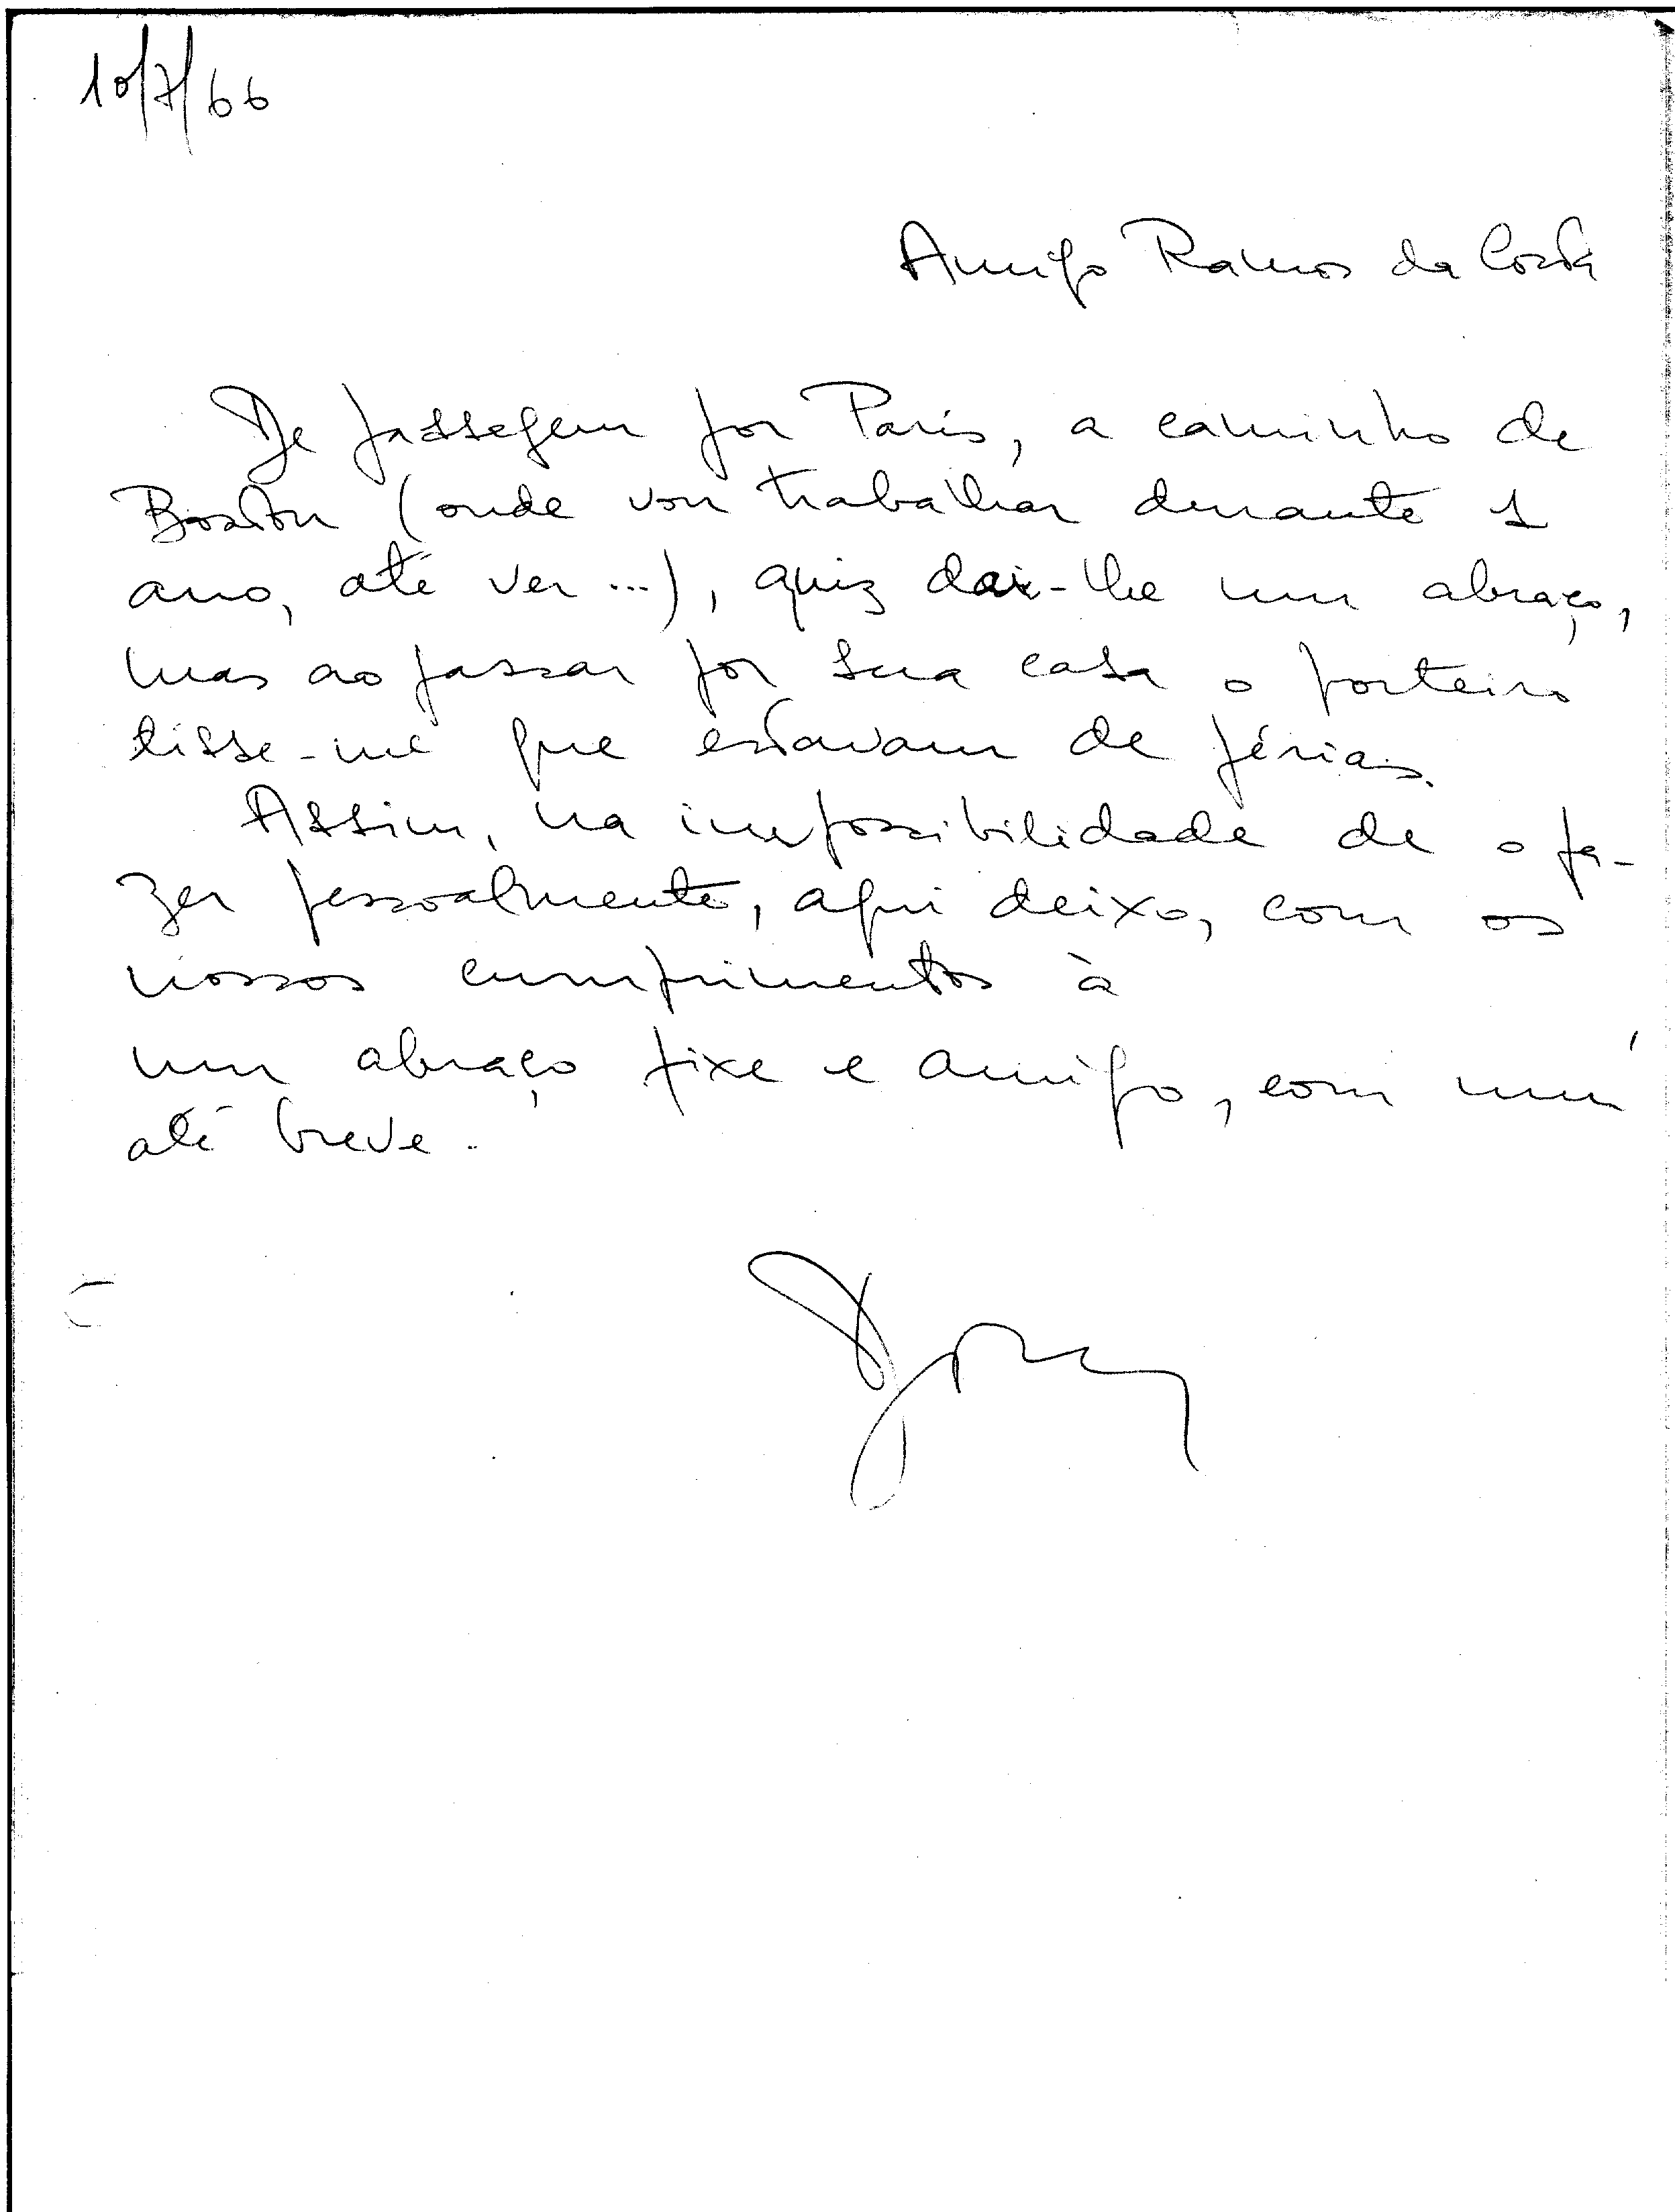 10/7/66
Amigo Ramos da Costa
De passagem por Paris, a caminho de
Boston (onde vou trabalhar durante 1
ano, até ver...), quiz dar-lhe um abraço,
mas ao passar por sua casa o porteiro
disse-me que estavam de férias.
Assim, na impossibilidade de o fa-
zer pessoalmente, aqui deixo, com os
nossos cumprimentos à
um abraço fixe e amigo, com um
até breve.